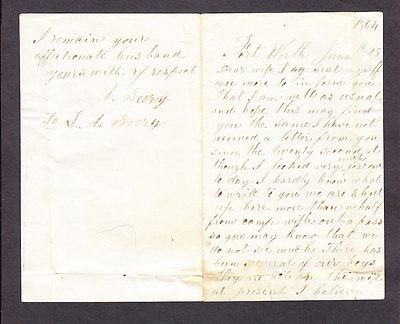 I remain your
affectionate husband
yours with respect
To S. A.
1864
Fort Worth June the 23
Dear wife I again
once more to inform you
that I am well as usual
and hope this may find
you the same I have not
received a letter from you
since the twenty second al
though I looked very much for one
to day. I hardly know what
to write to you we are shut
up here more than a half
from camp with out a pass
so you may know that we
do not see much. There has
been several of our boys
they are
at present I believe